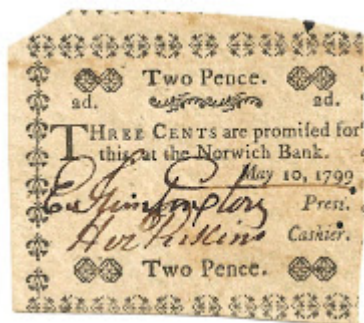 Two Pence.
2d. 2d.
THREE CENTS are promiſed for
this, at the Norwich Bank.
May 10, 1799
Prest.
Cashier.
Two Pence.